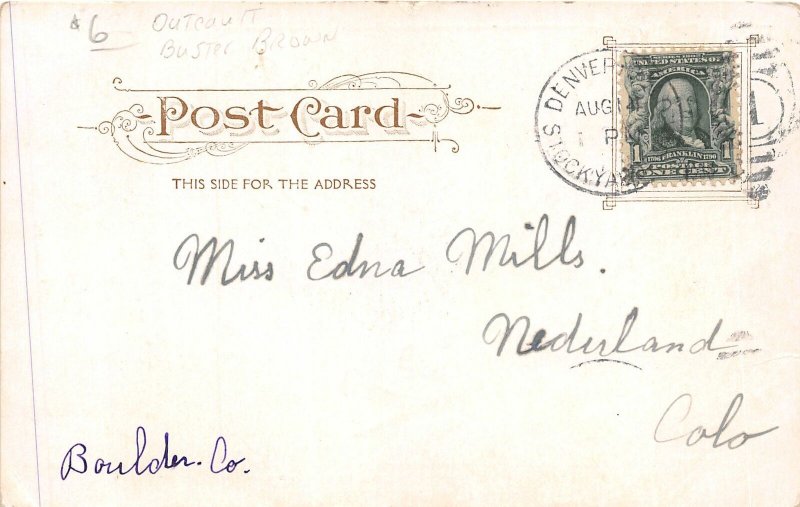 $6 Outcault
Buster Brown
Post Card
THIS SIDE FOR THE ADDRESS
DENVER
AUG 14
1 P
STOCKYARDS
1
SERIES 1902
UNITED STATES OF
AMERICA
1706 FRANKLIN 1790
1 POSTAGE 1
ONE CENT
Miss Edna Mills.
Nederland
Colo
Boulder. Co.